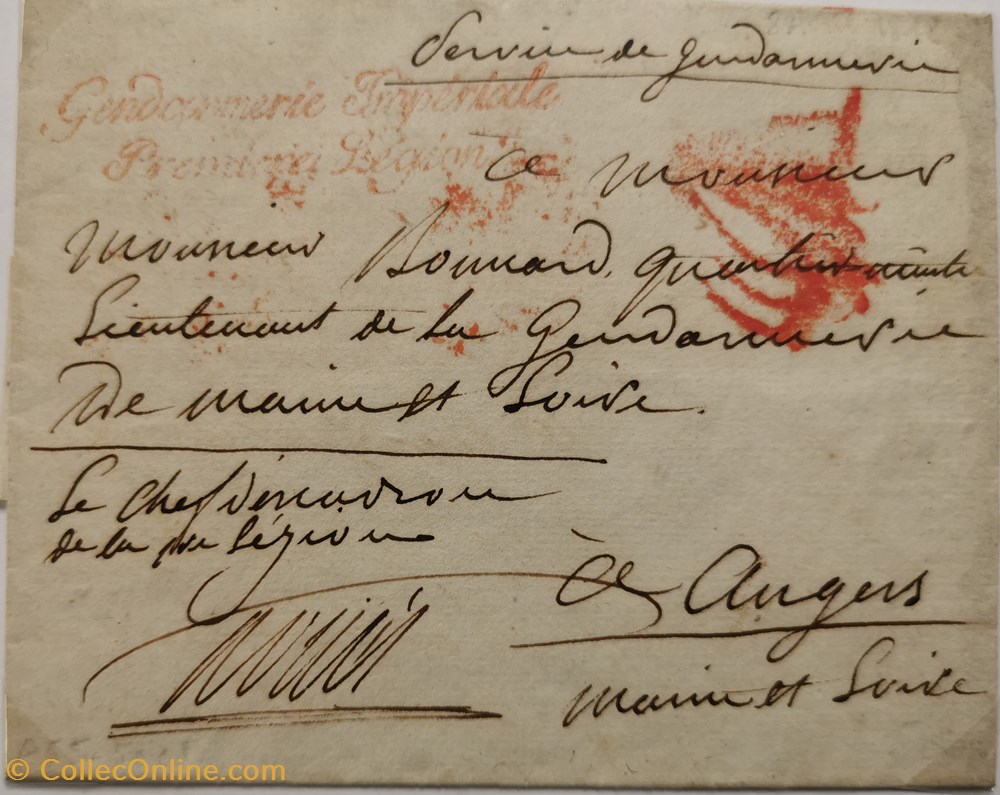 Service de Gendarmerie
Gendarmerie Impériale
Première Légion
a Monsieur
Monsieur Bonnard, quartier
Lieutenant de la Gendarmerie
De maine et Loire.
Le Chef d'escadron
de la 1re Légion
à Angers
maine et Loire
© CollecOnline.com